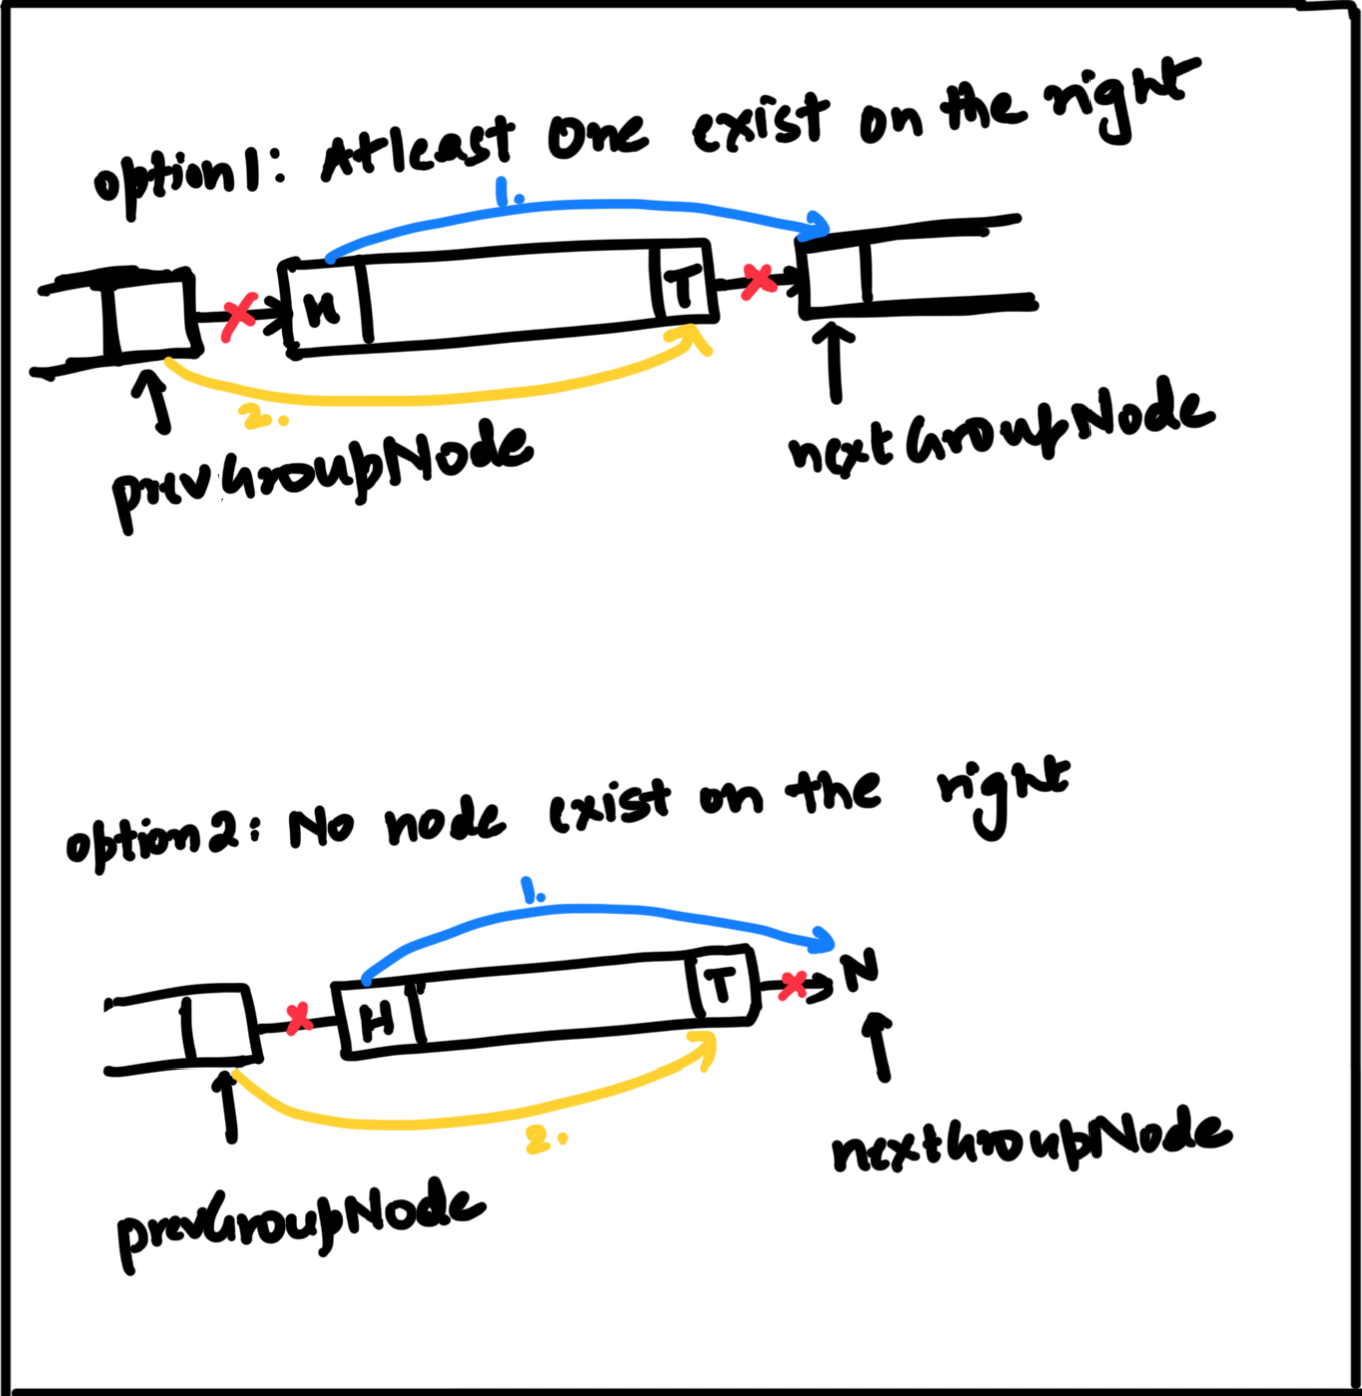 option1: Atleast One exist on the right
1.
H
T
2.
prevGroupNode
nextGroupNode
option2: No node exist on the right
1.
H
T
N
2.
prevGroupNode
nextGroupNode